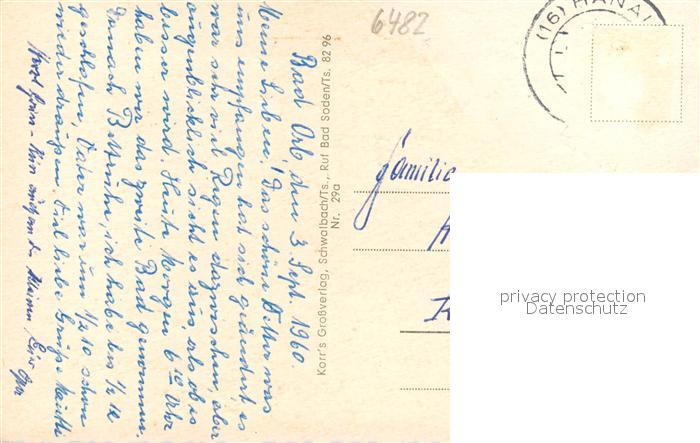 Bad Orb, den 3. Sept. 1960.
Meine Lieben! Das schöne Wetter was
uns empfangen hat sich geändert, es
war sehr viel Regen dazwischen, aber
augenblicklich sieht es aus, als ob es
besser wird. Heute Morgen 6 10 Uhr
haben wir das zweite Bad genommen.
Danach Bettruhe, ich habe bis 1/2 10
geschlafen, Vater war um 1/2 10 schon
wieder draußen. Viel liebe Grüße
Korr's Großverlag, Schwalbach/Ts., Ruf Bad Soden/Ts. 82 96
Nr. 29a
6482
(16) HANAU
Familie
privacy protection
Datenschutz